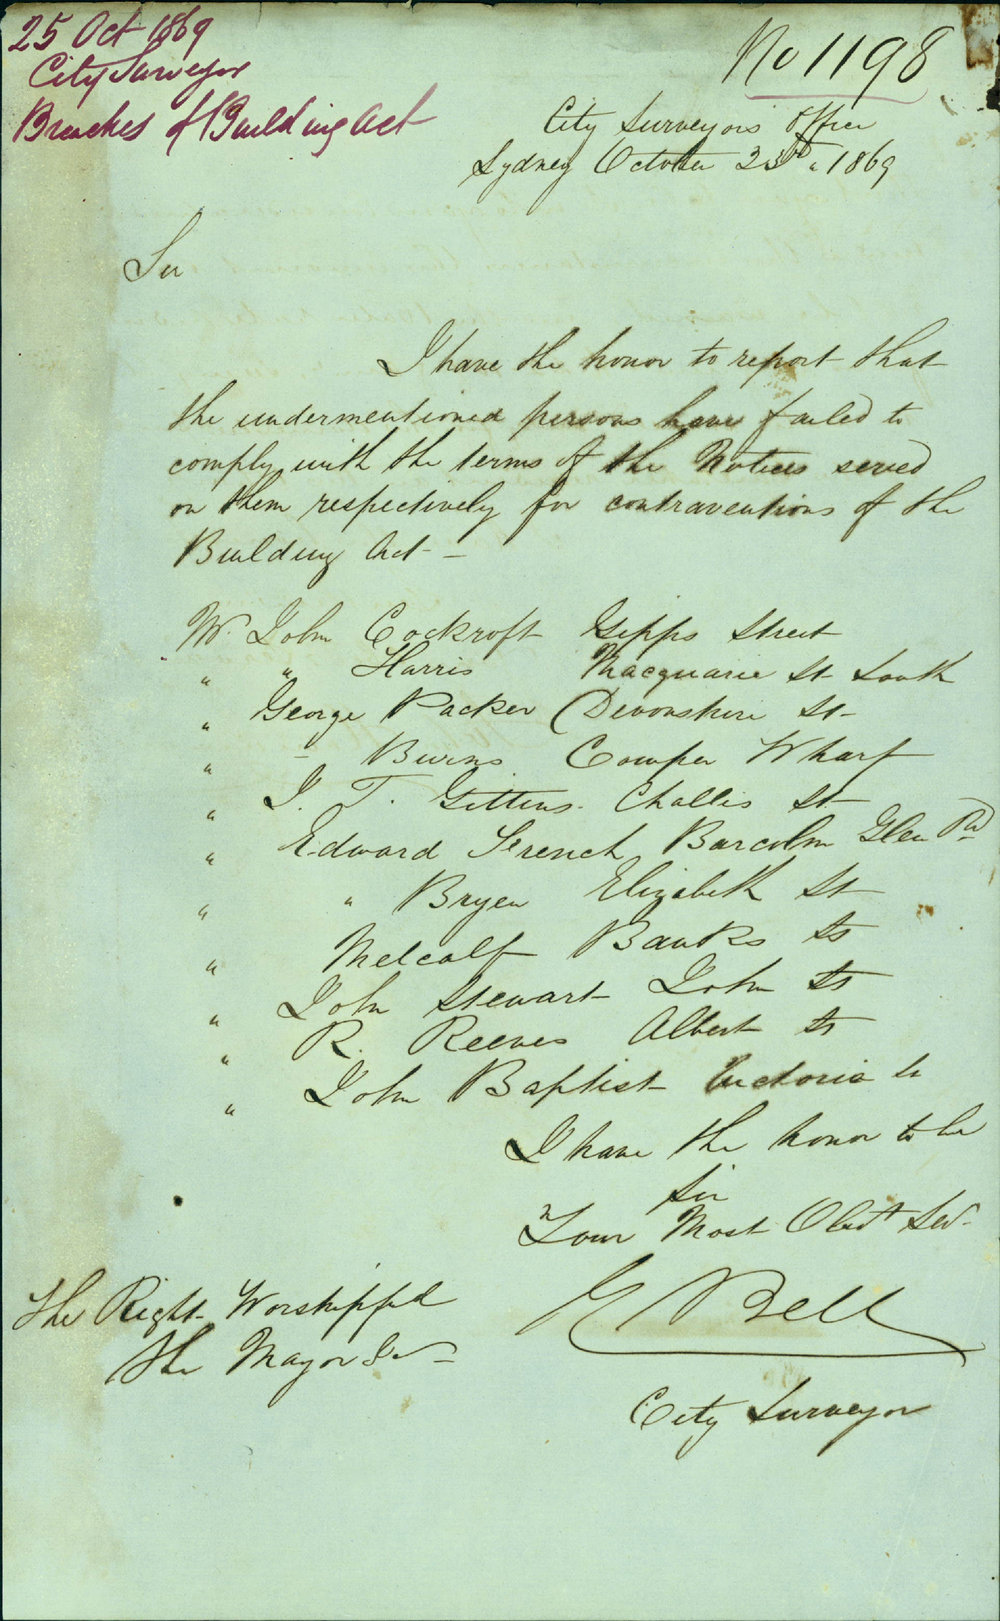 25 Oct 1869
City Surveyor
Breaches of Building Act
No 1198
City Surveyors Office
Sydney October 25th, 1869
Sir
I have the honor to report that
the undermentioned persons have failed to
comply with the terms of the Notices served
on them respectively for contraventions of the
Building Act –
Mr. John Cockroft Gipps Street
" " Harris Macquarie St South
" George Packer Devonshire St
" – Burns Cowper Wharf
" J. T. Gittins Challis St
" Edward French Barcolm Glen Rd
" " Bryen Elizabeth St
" Metcalf Banks St
" John Stewart John St
" R. Reeves Albert St
" John Baptist Victoria St
I have the honor to be
Sir
Your Most Obedt Sert
E Bell
City Surveyor
The Right Worshipful
The Mayor &c